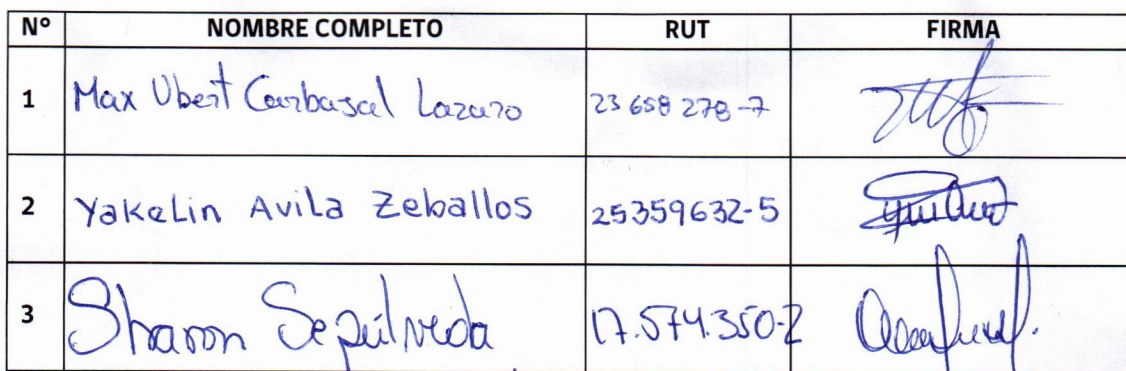 Nº NOMBRE COMPLETO RUT FIRMA
1 Max Ubert Carbasal Lazaro 23 658 278-7
2 Yakelin Avila Zeballos 25359632-5
3 Sharon Sepúlveda 17.574.350-2